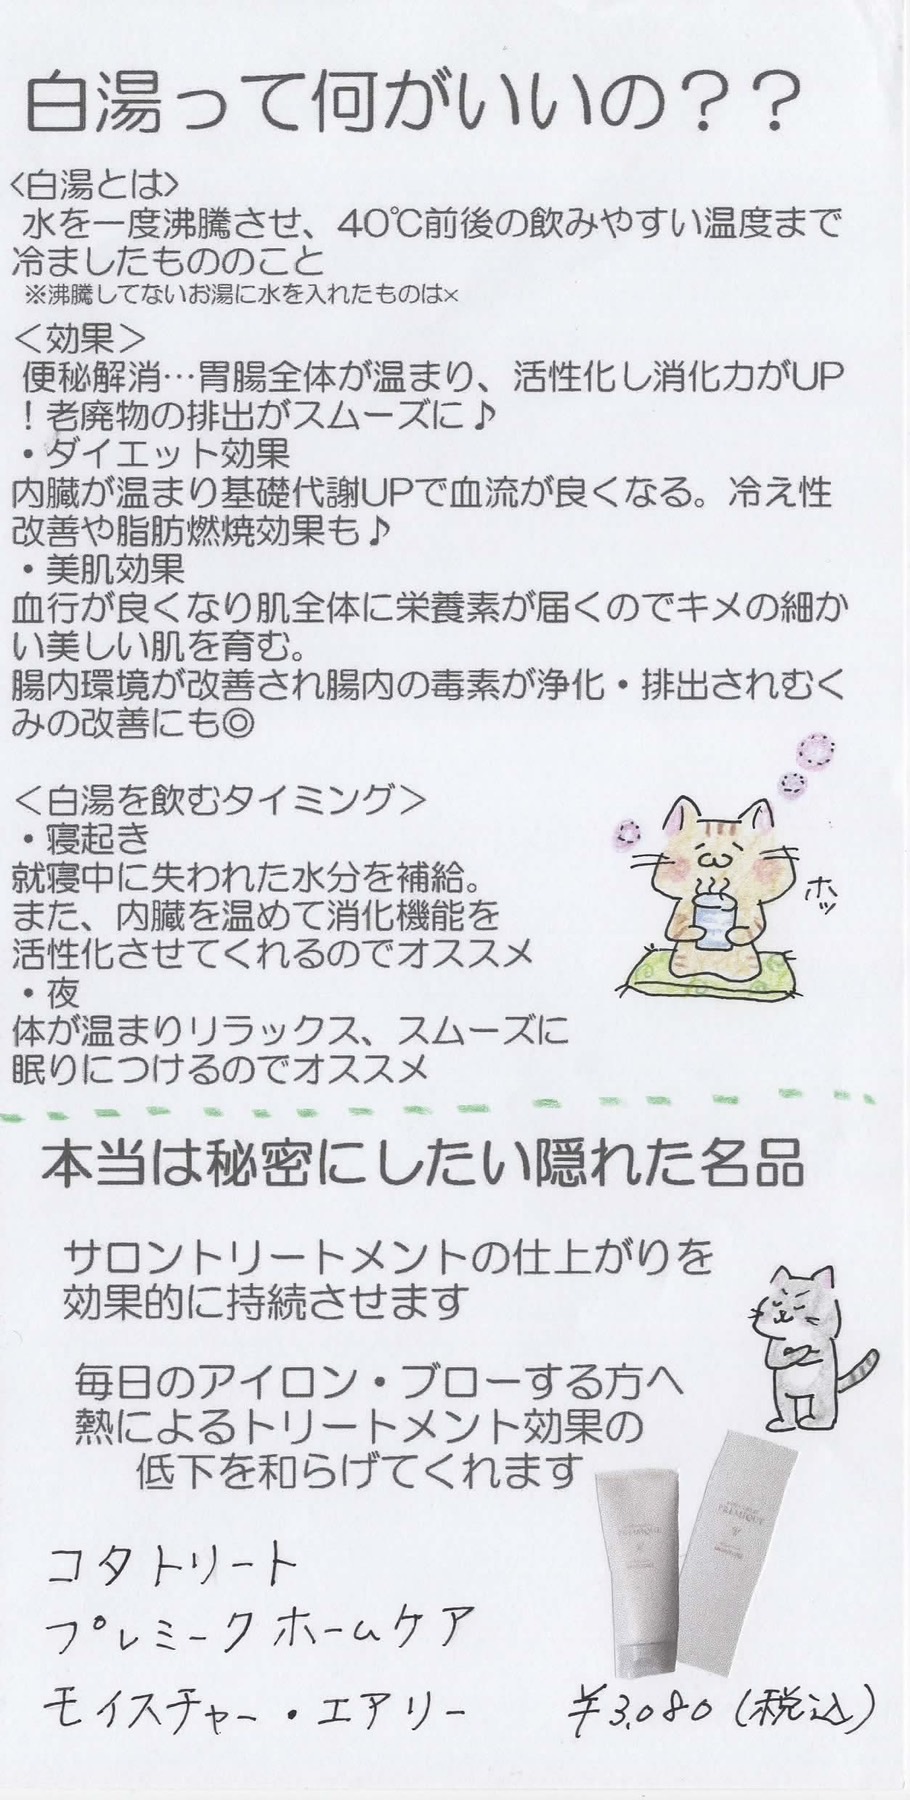 白湯って何がいいの？？
<白湯とは>
水を一度沸騰させ、40℃前後の飲みやすい温度まで
冷ましたもののこと
※沸騰してないお湯に水を入れたものは×
＜効果＞
便秘解消…胃腸全体が温まり、活性化し消化力がUP
！老廃物の排出がスムーズに♪
・ダイエット効果
内臓が温まり基礎代謝UPで血流が良くなる。冷え性
改善や脂肪燃焼効果も♪
・美肌効果
血行が良くなり肌全体に栄養素が届くのでキメの細か
い美しい肌を育む。
腸内環境が改善され腸内の毒素が浄化・排出されむく
みの改善にも◎
＜白湯を飲むタイミング＞
・寝起き
就寝中に失われた水分を補給。
また、内臓を温めて消化機能を
活性化させてくれるのでオススメ
・夜
体が温まりリラックス、スムーズに
眠りにつけるのでオススメ
ホッ
本当は秘密にしたい隠れた名品
サロントリートメントの仕上がりを
効果的に持続させます
毎日のアイロン・ブローする方へ
熱によるトリートメント効果の
低下を和らげてくれます
PREMIQUE
PREMIQUE
コタトリート
プレミークホームケア
モイスチャー・エアリー
¥3,080(税込)